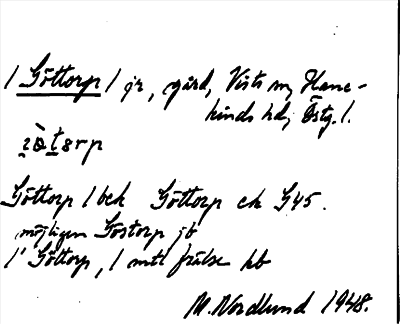 / Göttorp / jr, gård, Vists sn, Hane-
kinds hd, Östg. l.
Göttorp / bek Göttorp ek G45.
möjligen Göstorp jb
/ Göttorp, / mtl frälse hb
M. Nordlund 1948.